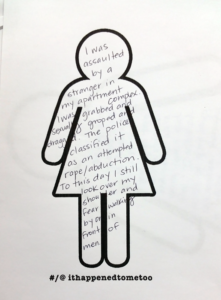 I was
assaulted
by a
stranger in
my apartment
complex
I was grabbed and
sexually groped and
dragged. The police
classified it
as an attempted
rope/abduction.
To this day I still
look over my
shoulder and
fear walking
by or in
front of
men.
#/@ ithappenedtometoo